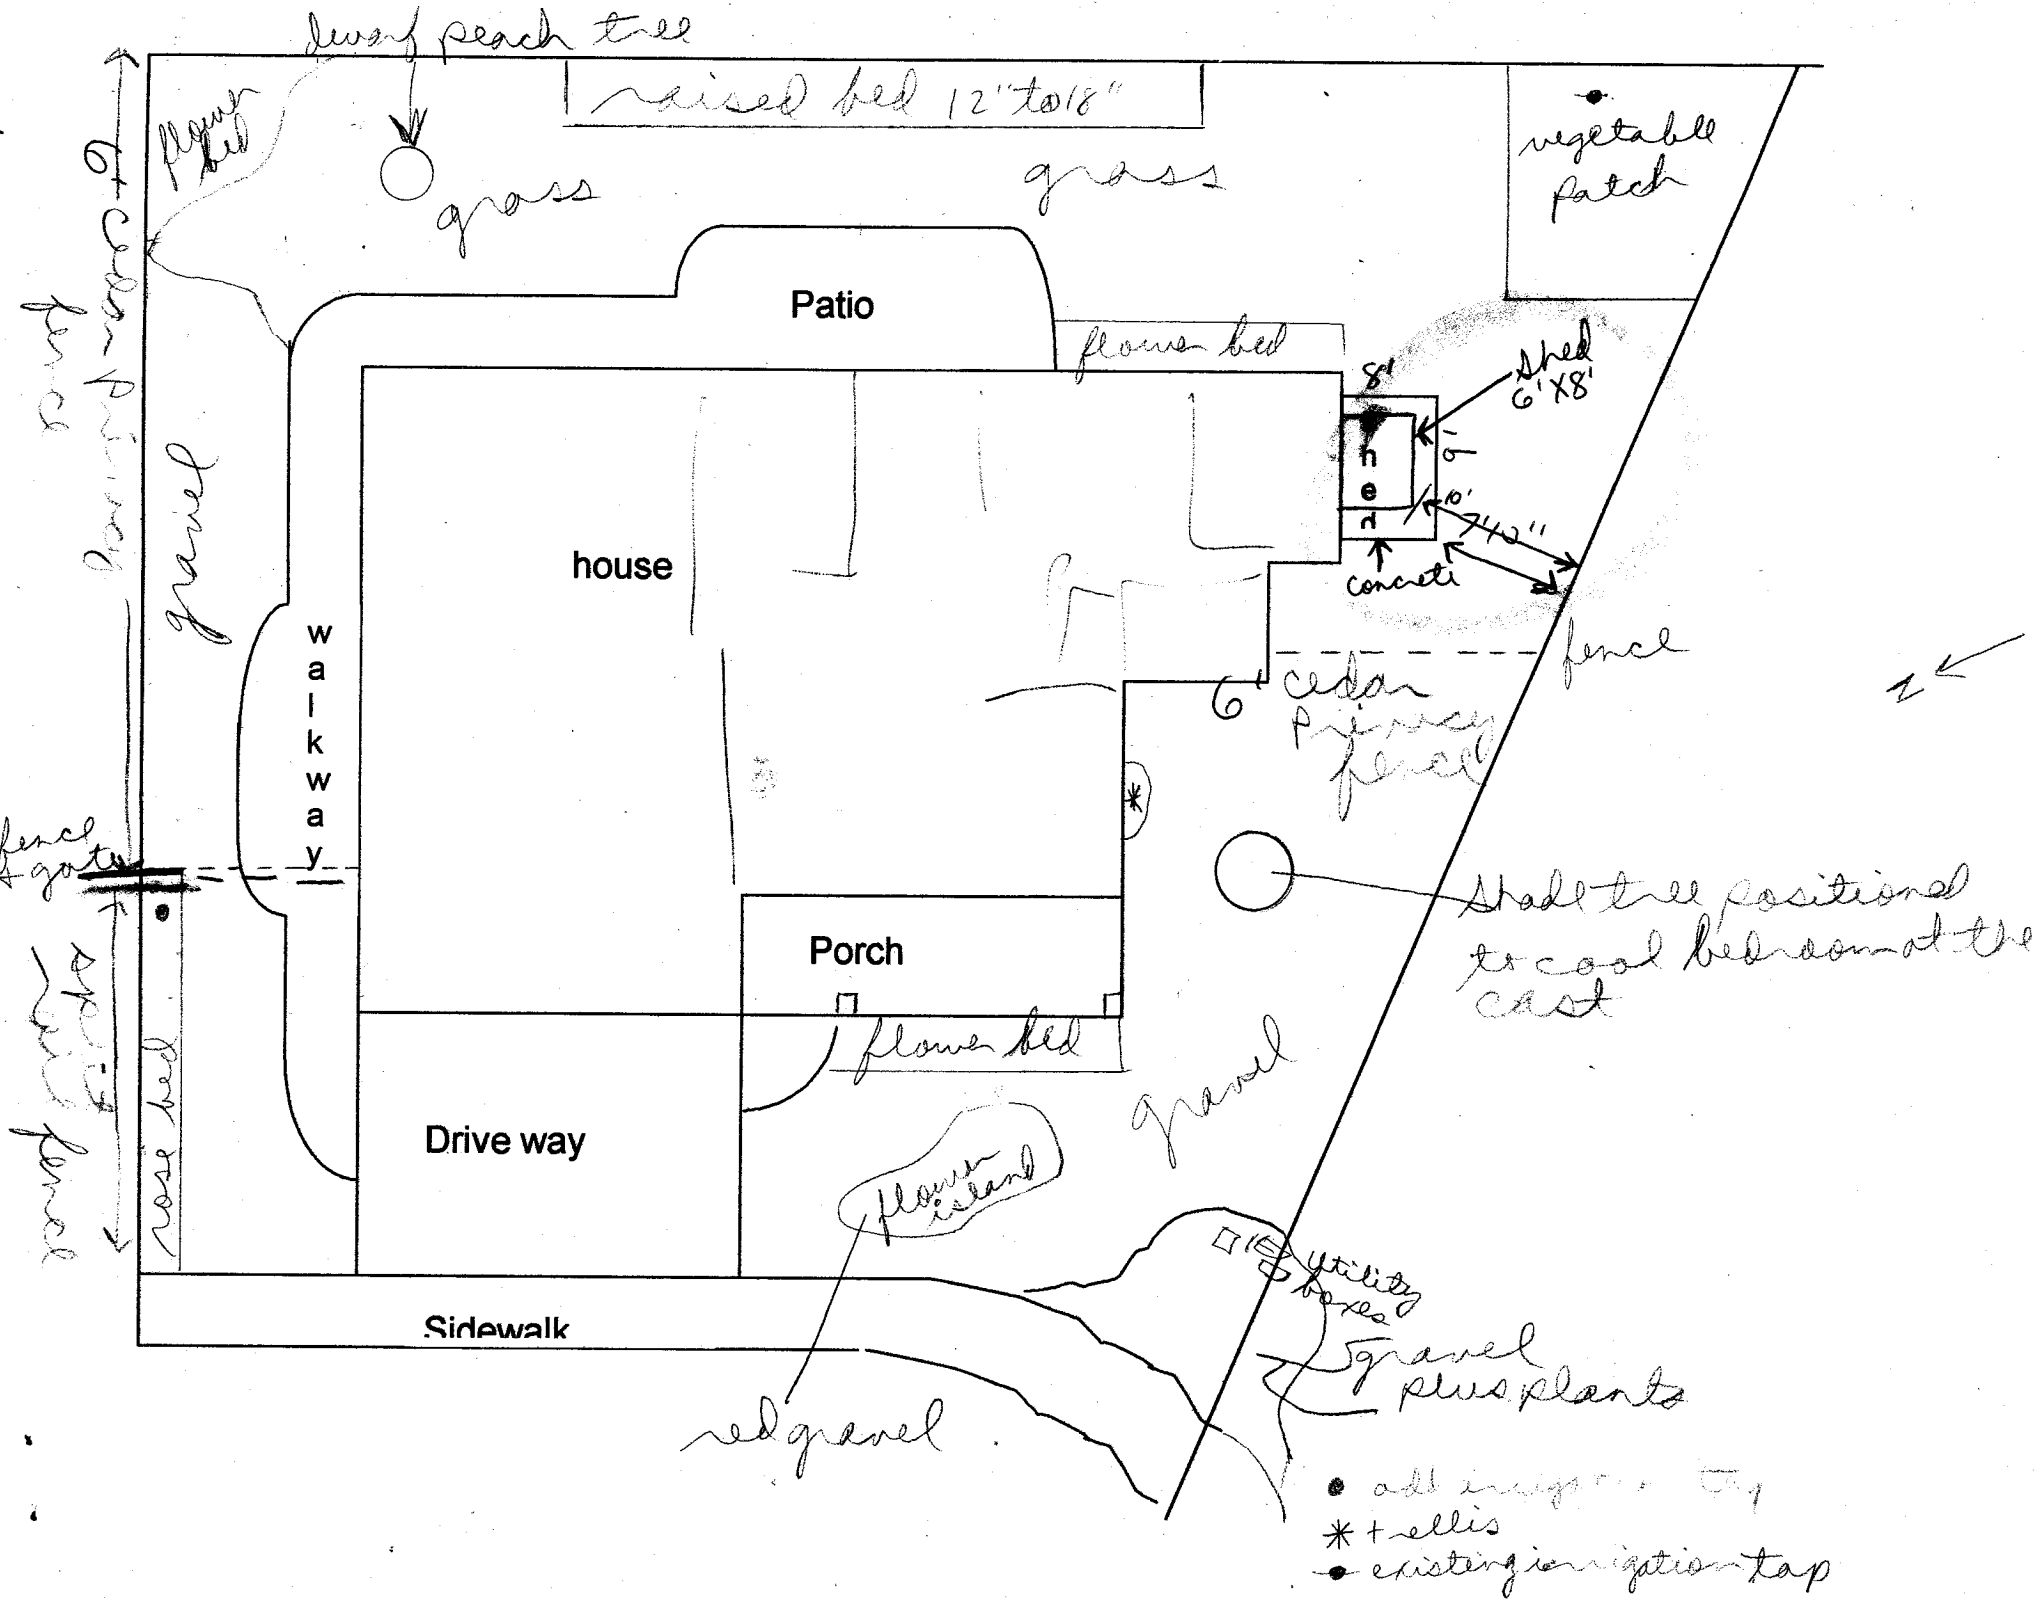 dwarf peach tree
raised bed 12" to 18"
flower
bed
grass
grass
vegetable
patch
6' cedar privacy
fence
Patio
flower bed
shed
6'X8'
8'
9'
10'
7'10"
concrete
gravel
house
walkway
fence
6'
cedar
privacy
fence
N
fence
+ gate
shade tree positioned
to cool bedroom at the
east
Porch
flower bed
split
rail fence
rose bed
gravel
Drive way
flower
island
utility
boxes
Sidewalk
gravel
plus plants
red gravel
add irrigation tap
trellis
existing irrigation tap